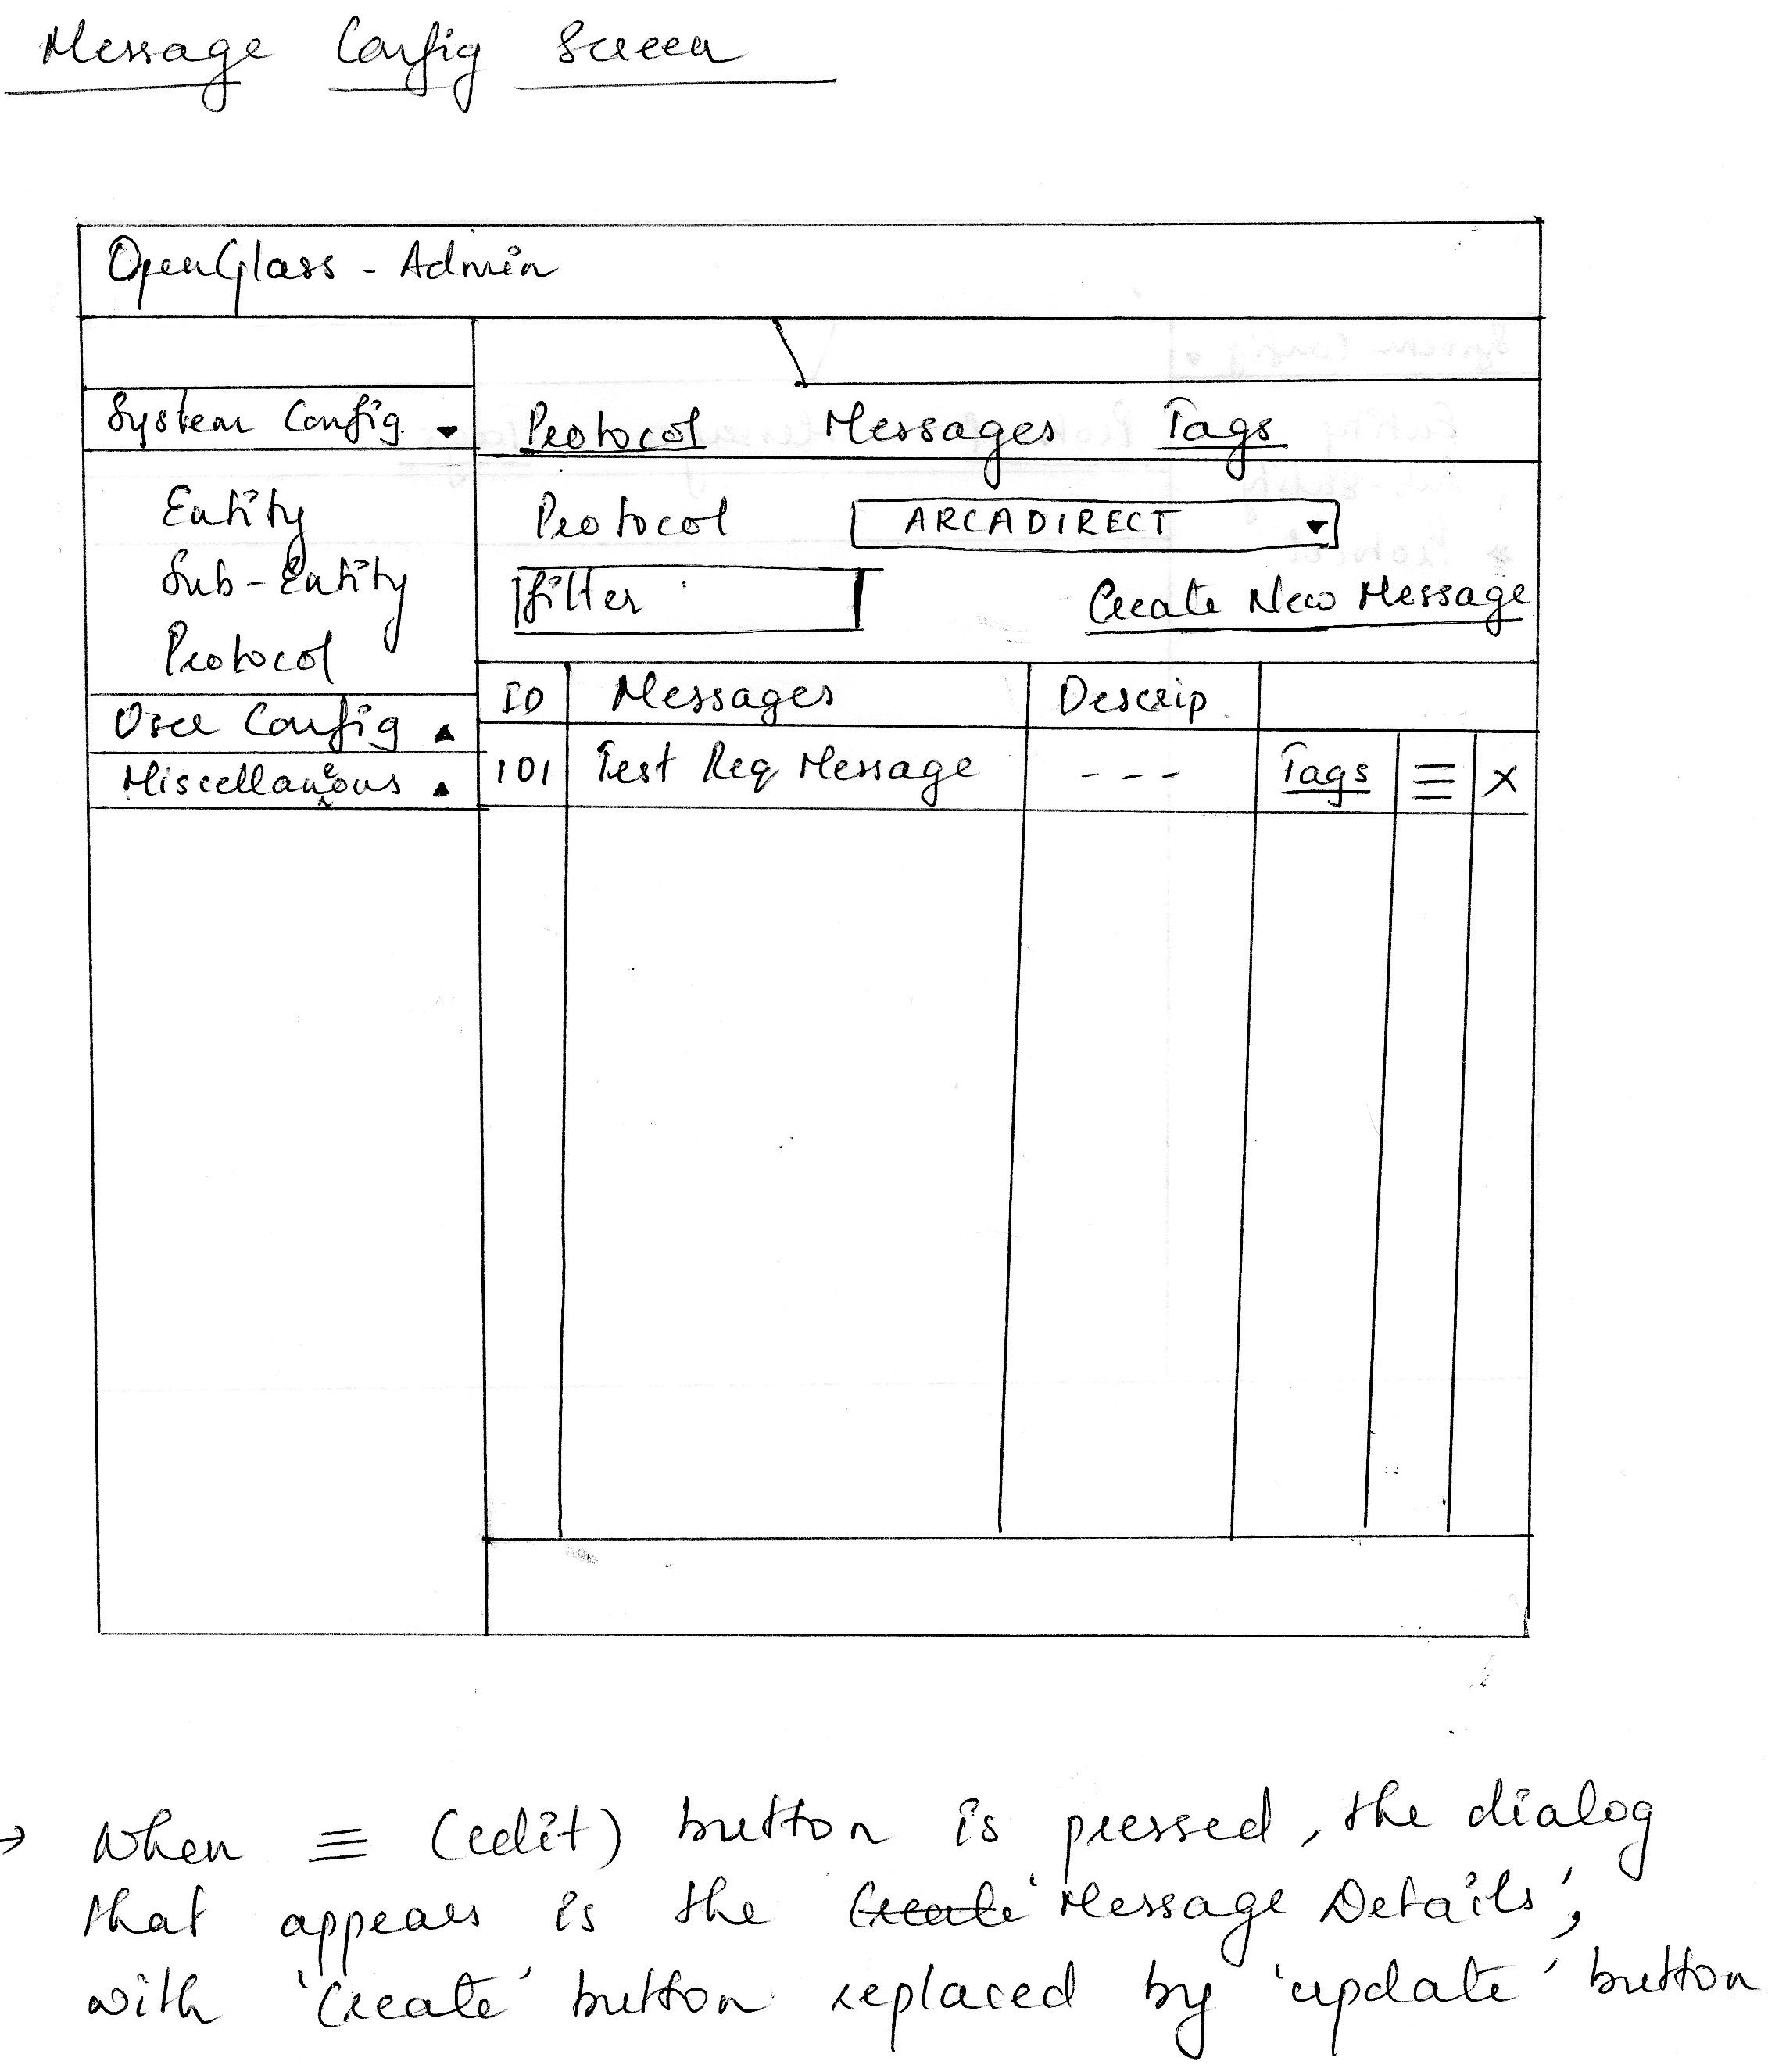 Message Config Screen
OpenGlass - Admin
System Config
Protocol Messages Tags
Entity
Sub-Entity
Protocol
User Config
Miscellaneous
Protocol ARCADIRECT
filter Create New Message
ID Messages Descrip
101 Test Req Message --- Tags ≡ X
→ When ≡ (edit) button is pressed, the dialog
that appears is the Create 'Message Details',
with 'Create' button replaced by 'update' button